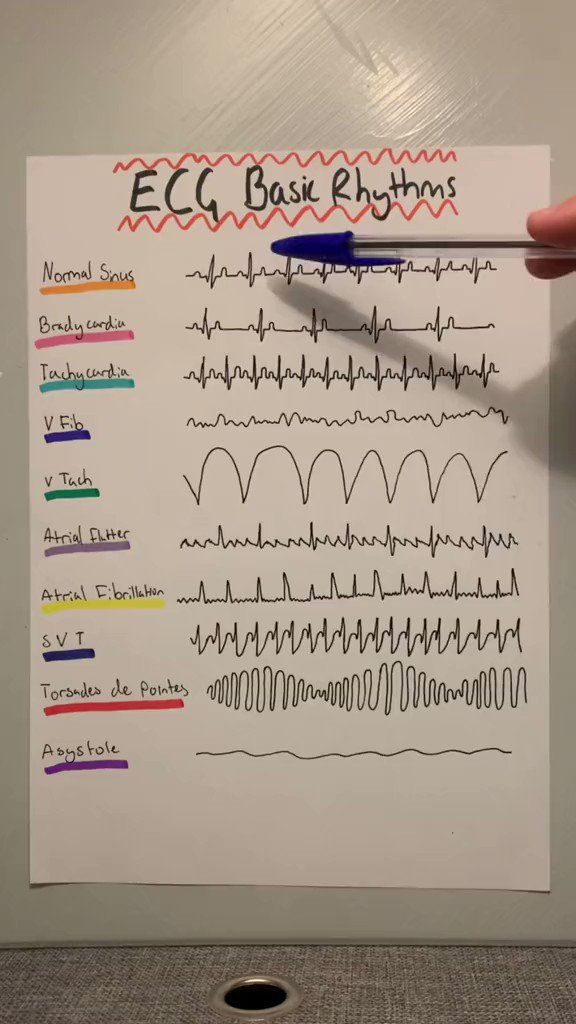 ECG Basic Rhythms
Normal Sinus
Bradycardia
Tachycardia
V Fib
V Tach
Atrial Flutter
Atrial Fibrillation
SVT
Torsades de Pointes
Asystole